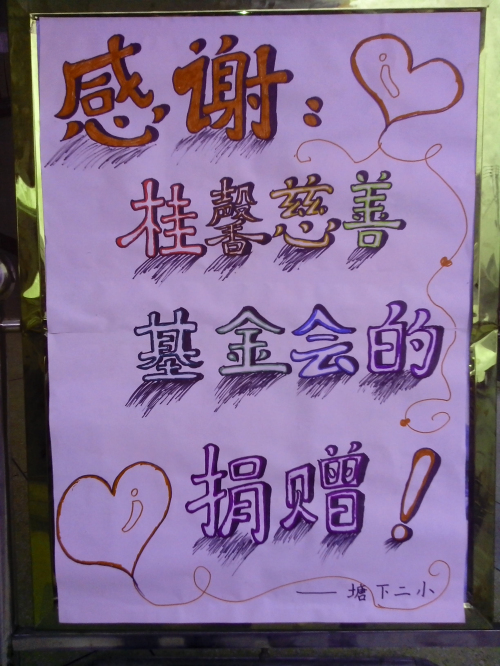 感谢：
桂馨慈善
基金会的
捐赠！
——塘下二小